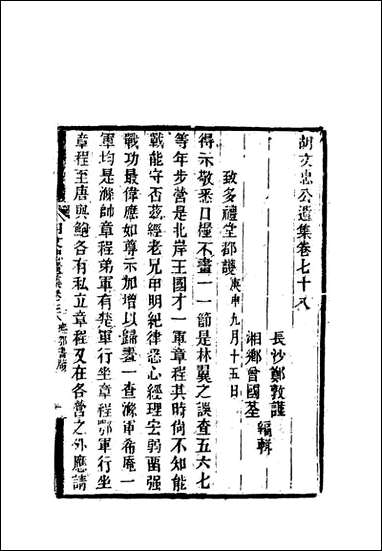 胡文忠公遺集卷七十八
長沙鄭敦謹
湘鄉曾國荃
編輯
致多禮堂都護庚申九月十五日
得示敬悉口糧不畫一一節是林翼之誤查五六七
等年步營是北岸王國才一軍章程其時尙不知能
戰能守否茲經老兄申明紀律悉心經理安弱而强
戰功最偉應如尊示加增以歸畫一查滌軍希庵一
軍均是滌帥章程弟軍有楚軍行坐章程鄂軍行坐
章程至唐與鮑各有私立章程又在各營之外應請